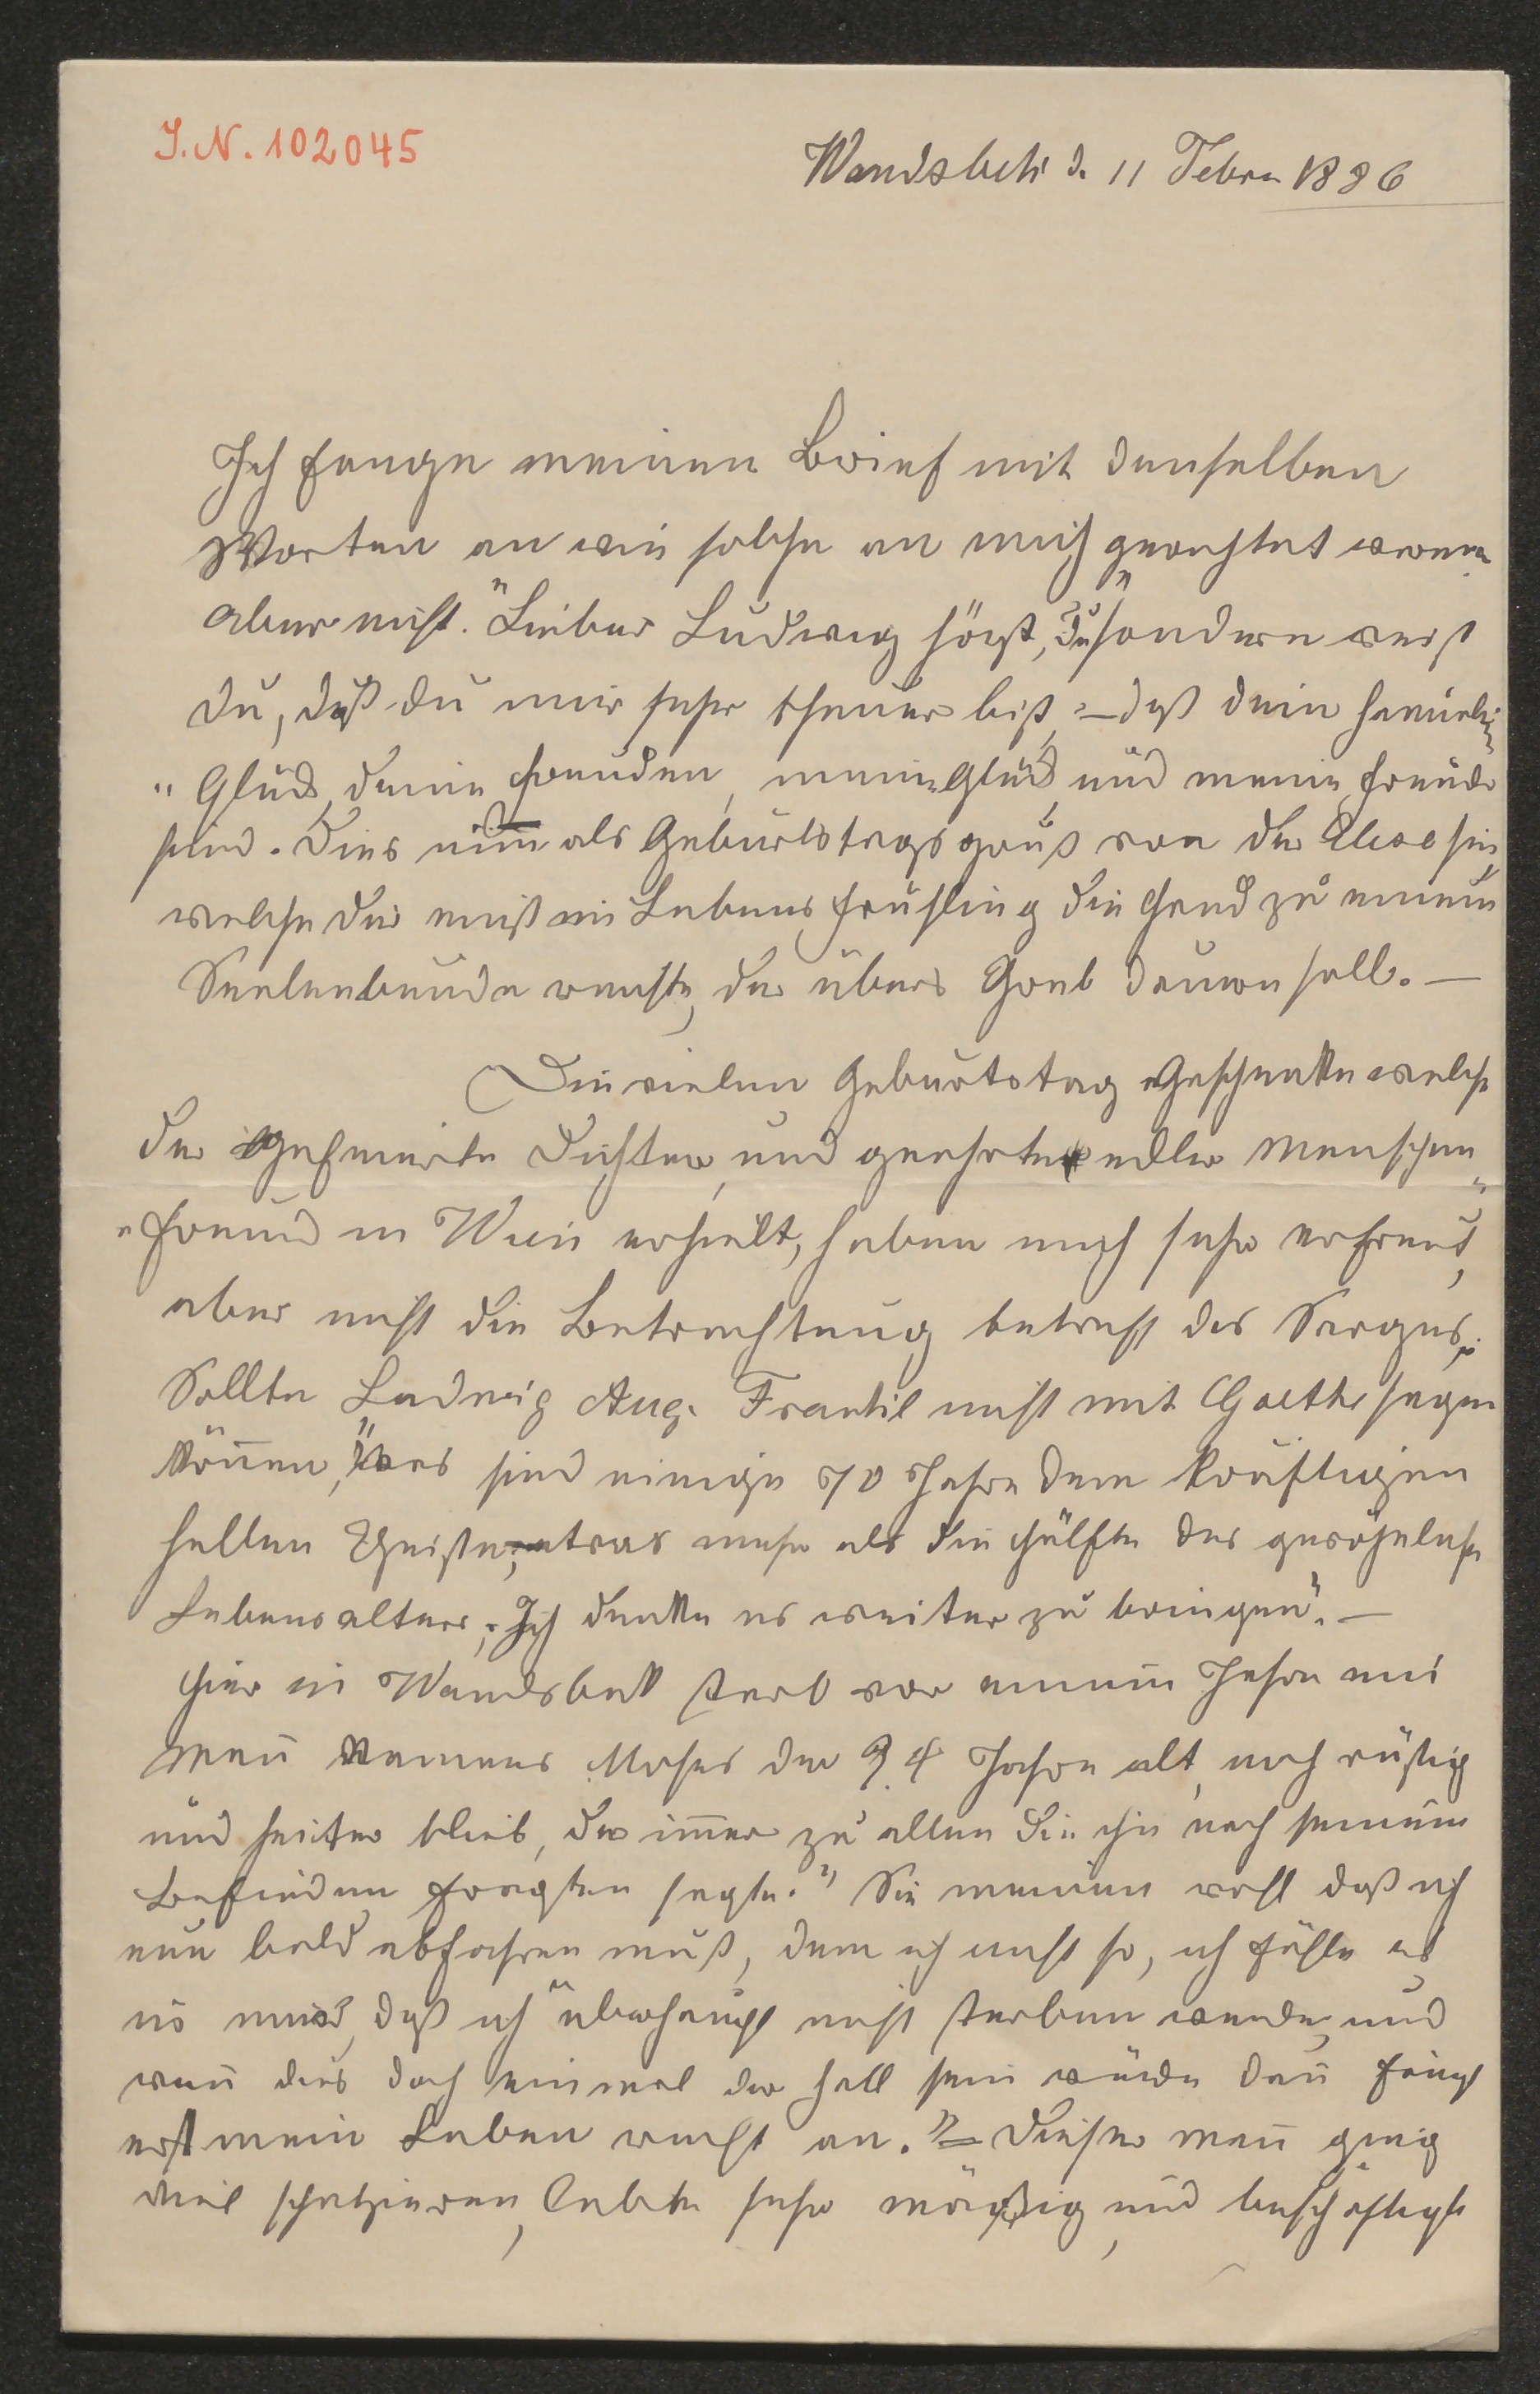 I.N. 102045
Wandsbek d. 11 Febru 1886
Ich fange meinen Brief mit denselben
Worten an wie solche an mich gerichtet waren
aber nicht. "Lieber Ludwig hörst Du" sondern weist
Du, daß Du mir sehr theuer bist, – daß dein
"Glück, deine Freuden, mein Glück und meine Freude
sind. Dies nim̅ als Geburtstagsgruß von der Elise hin,
welche dir einst im Lebensfrühling die Hand zu einem
Seelenbunde reichte, der übers Grab dauern soll. —
Die vielen Geburtstag Geschenke welche
der gefeierte Dichter, und geehrte edler Menschen
"freund in Wien erhielt, haben mich sehr erfreut,
aber nicht die Betrachtung betreff des Sarges.
Sollte Ludwig Aug. Frankl nicht mit Goethe sagen
kön̅en, "was sind einige 70 Jahre dem kräftigen
hellen Geiste; etwas mehr als die Hälfte des gewöhnlichen
Lebensalters; Ich denke es weiter zu bringen". —
Hier in Wandsbek starb vor einem Jahre ein
Man̅ Namens Moses der 94 Jahre alt, noch rüstig
und heiter blieb, der im̅er zu allen die ihn nach seinem
Befinden fragten sagte. "Sie meinen wohl daß ich
nun bald abfahren muß, dem ist nicht so, ich fühle es
in mir, daß ich überhaupt nicht sterben werde, und
wen̅ dies doch einmal der Fall sein würde dan̅ fängt
erst mein Leben recht an." = Dieser Man̅ ging
viel spatzieren, lebte sehr mäßig, und beschäftigte